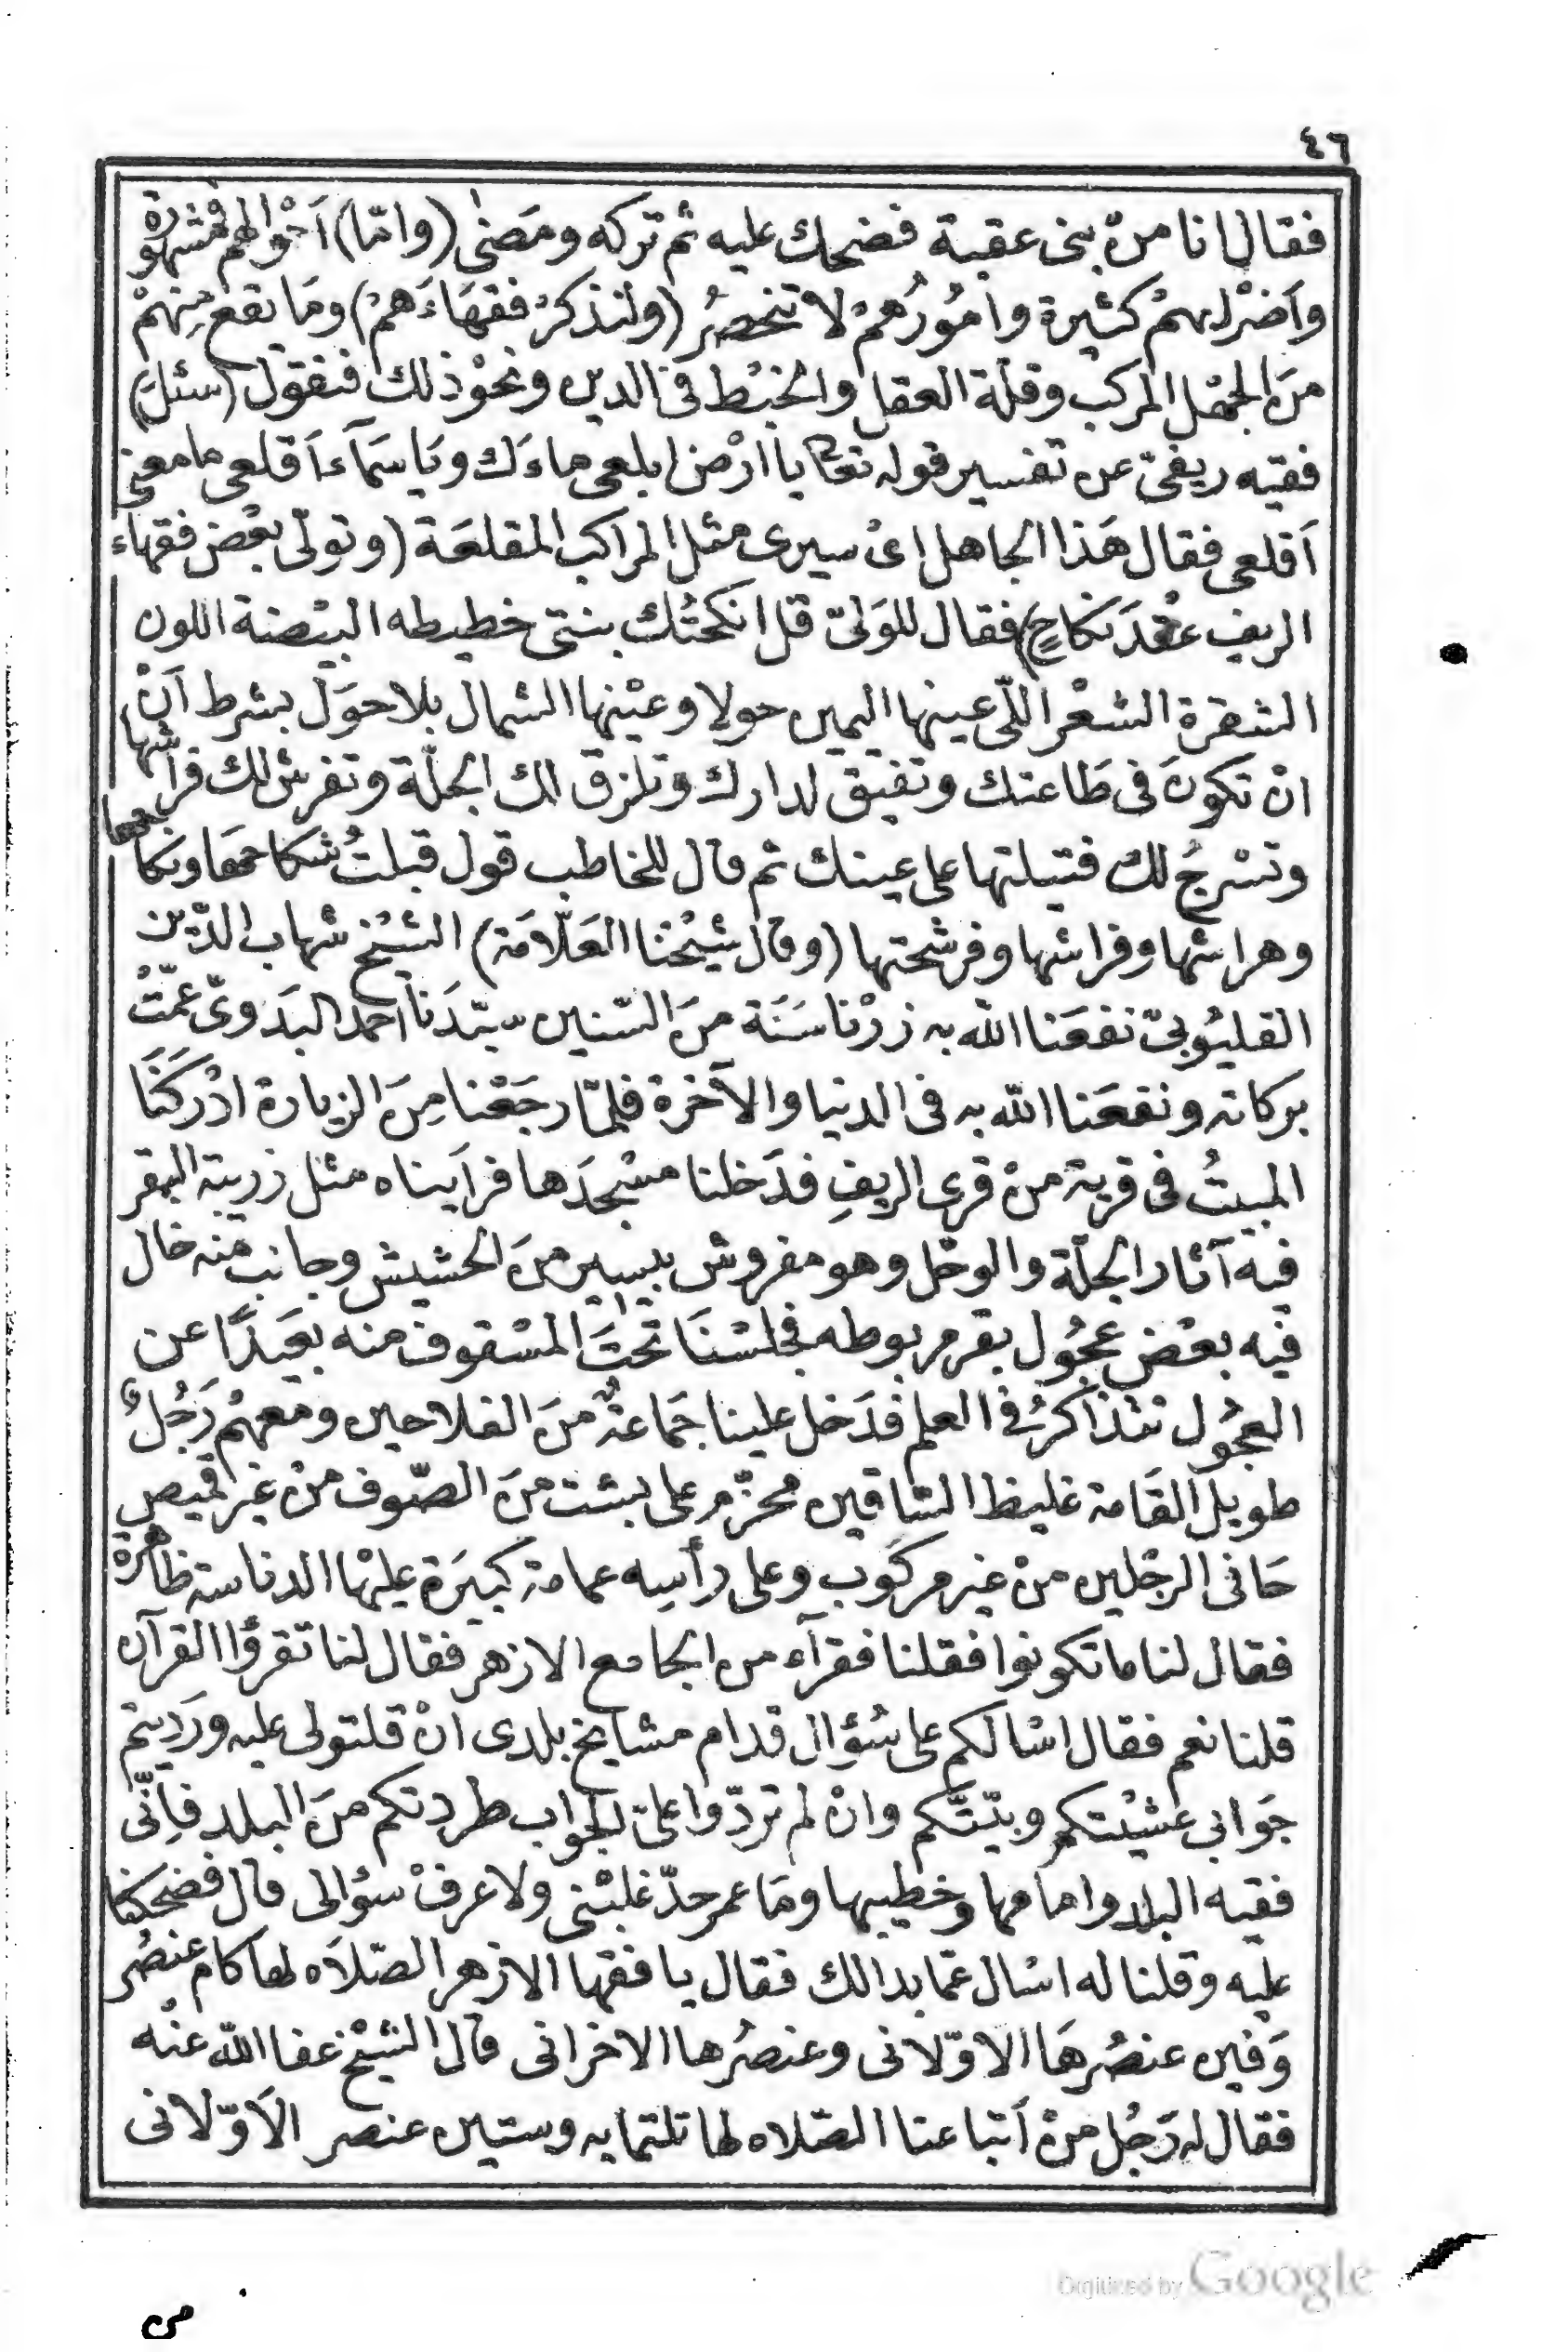 ٤٦
فقال انا منْ بنى عقبة فضحك عليه ثم تركه ومَضىٰ (وامّا) اَحْوالهم فمشهورة
واَضرْابهمْ كثيرة واُمُورُهمْ لا تنحصُر (ولنذكرْ فقهَاءَهمْ) ومَا يقع مِنهمْ
منَ الجهْل المركب وقلّة العقل والخبْط فى الدين ونحوْ ذلك فنقول (سئل)
فقيه ريفىّ عن تفسير قوله تعالى يا ارْض ابلعى ماءَك ويَا سَمآءَ اَقلعى ما معنى
اَقلعى فقال هَذا الجاهل اىْ سيرى مثل المراكب المقلعَة (وتولّى بعْض فقهاء
الريف عقْدَ نكاحٍ) فقال للوَلىّ قل انكحتُك بنتى خطيطه البيْضة اللون
الشقرة الشعْر اللّى عينها اليمين حولا وعيْنها الشمال بلا حوَل بشرط اَنْ
انْ تكونَ فى طَاعتك وتفيق لدارك وتلزق لك الجلّة وتفرش لك فراشها
وتسْرجُ لك فتيلتها على عينك ثم قال للخاطب قول قبلتُ شكاحهَا ونكاحها
وهراشها وفراشها وفرشحتها (وقال شيْخنا العَلّامَة) الشيْخ شهاب الدّين
القليُوبىّ نفعَنا الله به زرْنا سَنَة منَ السّنين سيّدَنا اَحمد البدَوىّ عمّتْ
بركاته ونفعَنا الله به فى الدنيا والآخرة فلمّا رجَعْنا مِنَ الزيارة ادْركَنَا
المبيتُ فى قرية منْ قرى الريفِ فدَخلنا مسْجدَها فراَيناه مثل زريبة البقر
فيه آثار الجلّة والوحْل وهو مفروش بيسير منَ الحشيش وجانب منه خال
فيه بعْض عجُول بقر مربوطه فجلسْنَا تحْتَ المسْقوف منه بعَيدًا عن
العجُول نتذاكرُ فى العلم فدَخل علينا جَماعةٌ منَ الفلاحين ومعهمْ رَجُلٌ
طويل القَامة غليظ السّاقين محزّم على بشت منَ الصّوف منْ غيْر قميص
حَافى الرجْلين منْ غير مركُوب وعلى رأسِه عمامة كبيَرة عليْها الدناسة ظاهرة
فقال لنا ما تكونوا فقلنا فقرآء من الجامع الازهر فقال لنا تقرؤا القرآن
قلنا نعم فقال اسْالكم على سُؤال قدام مشايخ بلدى انْ قلتولى عليه ورَديتم
جوَابى عشيْتكم وبيّتّكم وانْ لم تردّوا علىّ الجواب طردتكم منَ البلد فاِنّى
فقيه البلد وامامها وخطيبها ومَا عمر حدّ غلبْنى ولا عرفْ سؤالى قال فضحكنا
عليْه وقلنا له اسْال عمّا بدالك فقال يا فقها الازهر الصّلاَه لها كام عنصُر
وَفين عنصُرهَا الاوّلانى وعنصُرها الاخرانى قال الشيْخ عفا الله عنْه
فقال له رَجُل منْ اَتباعنا الصّلاه لها تلتمايه وستين عنصر الاَوّلانى
من
Digitized by Google